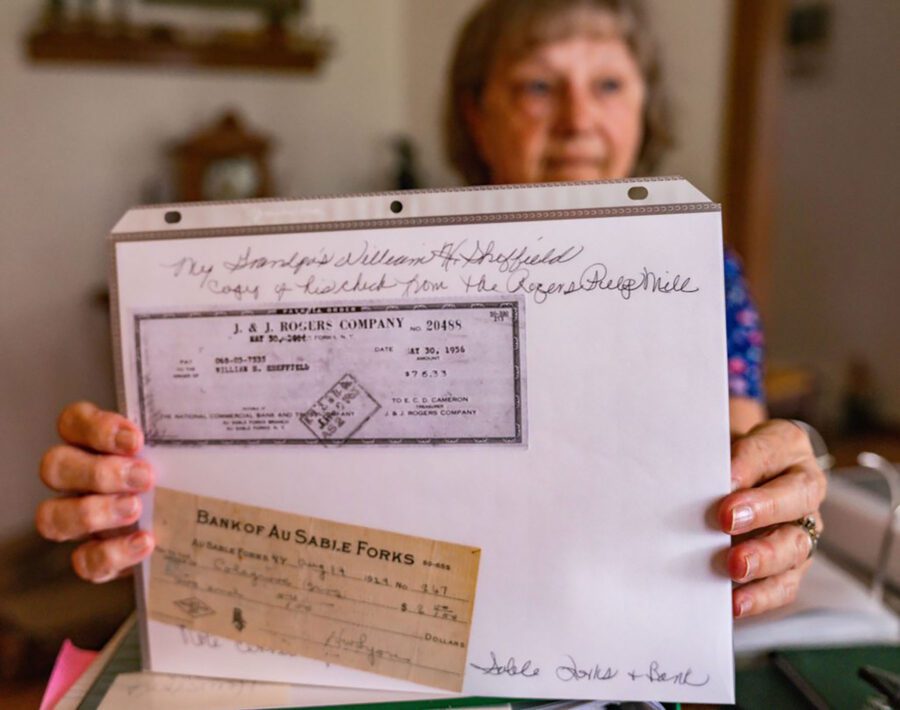 My Grandpa's William H. Sheffield
Copy of his check from the Rogers Pulp Mill
J. & J. ROGERS COMPANY NO. 20488
MAY 30, FORKS, N. Y.
DATE MAY 30, 1956
PAY
TO THE
ORDER OF
068-03-7533
WILLIAM H. SHEFFIELD
AMOUNT
$76.33
TO E. C. D. CAMERON
TREASURER
J. & J. ROGERS COMPANY
PAYABLE AT
THE NATIONAL COMMERCIAL BANK AND COMPANY
AU SABLE FORKS BRANCH
AU SABLE FORKS N. Y.
BANK OF AU SABLE FORKS
AU SABLE FORKS, N.Y. Aug 19 No 267
Bros
$
DOLLARS
Note
Sable Forks + Bank